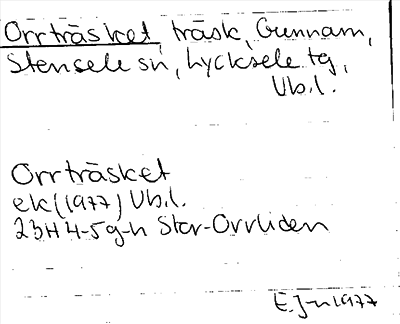 Orrträsket, träsk, Gunnarn,
Stensele sn, Lycksele tg,
Vb.l.
Orrträsket
ek (1977) Vb.l.
23H 4-5g-h Stor-Orrliden
E.J-n 1977